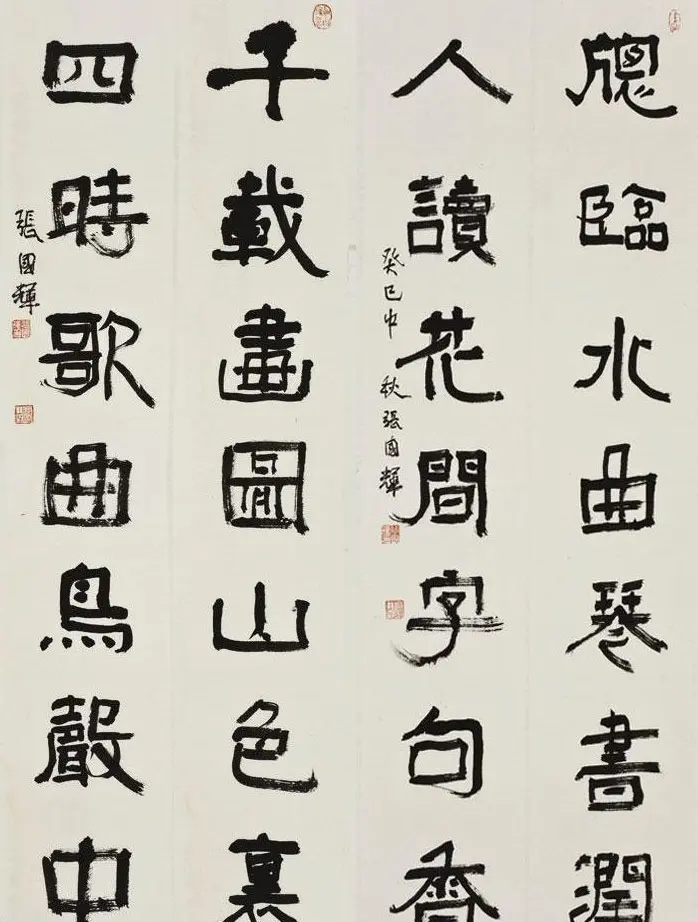 牕臨水曲琴書潤
人讀花間字句香
癸巳中秋張國輝
千載畫圖山色裏
四時歌曲鳥聲中
張國輝